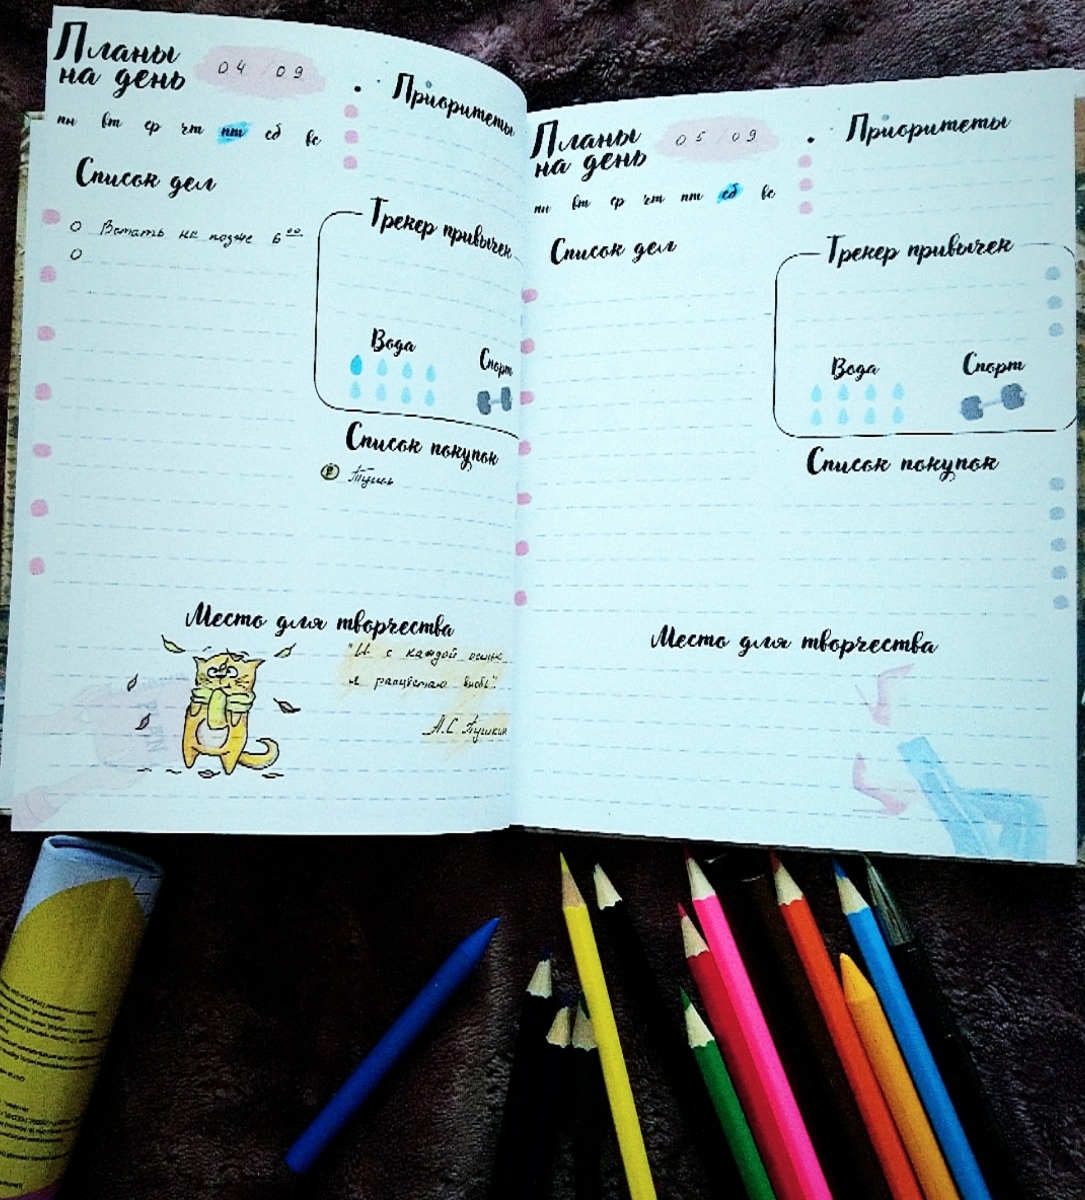 Планы
на день
04 / 09
пн вт ср чт пт сб вс
Список дел
О Встать не позже 6 00
О
Приоритеты
Трекер привычек
Вода
Спорт
Список покупок
Тушь
Место для творчества
"И с каждой осенью
я расцветаю вновь".
А.С Пушкин
Планы
на день
05 / 09
пн вт ср чт пт сб вс
Список дел
Приоритеты
Трекер привычек
Вода
Спорт
Список покупок
Место для творчества